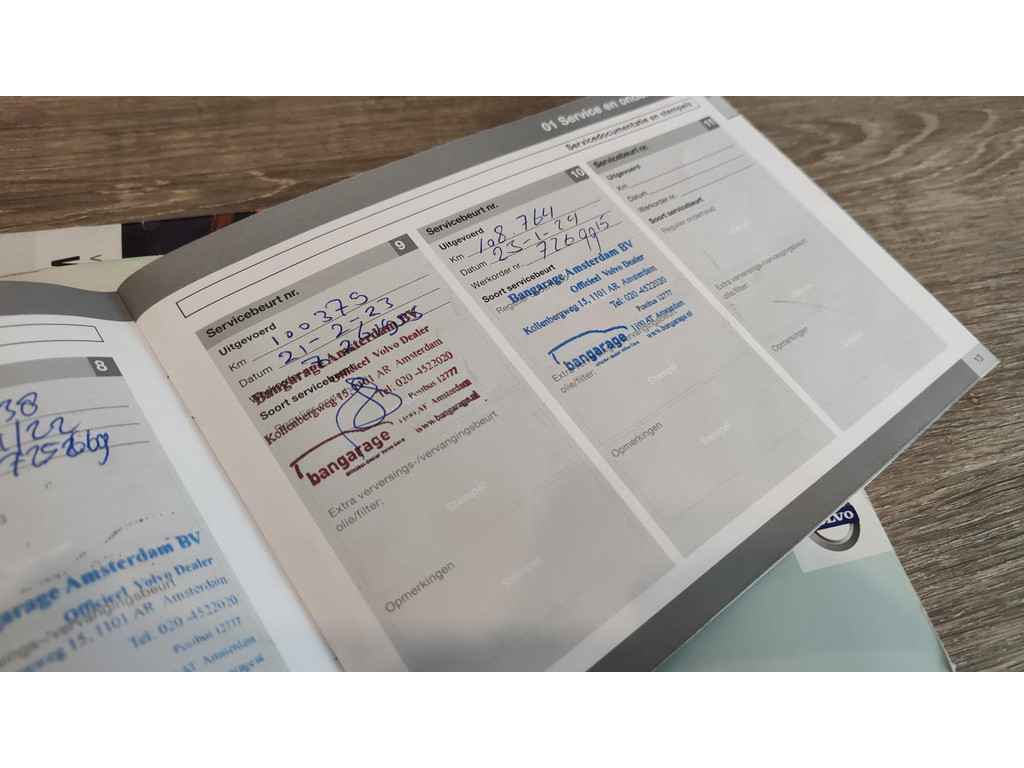 01 Service en onde
Servicedocumentatie en stempels
8
38
1/22
Garage Amsterdam BV
Officieel Volvo Dealer
weg 15, 1101 AR Amsterdam
Tel. 020 -4522020
Postbus 12777
AT Amsterdam
Servicebeurt nr. 9
Uitgevoerd
Km 100375
Datum 21-2-23
Bangarage Amsterdam BV
Officieel Volvo Dealer
Soort servicebeurt
Kollenbergweg 15, 1101 AR Amsterdam
Tel. 020 -4522020
Postbus 12777
1100 AT Amsterdam
www.bangarage.nl
bangarage
Extra verversings-/vervangingsbeurt
olie/filter:
Stempel
Opmerkingen
Stempel
Servicebeurt nr. 10
Uitgevoerd
Km 108.764
Datum 25-1-24
Werkorder nr. 7269915
Soort servicebeurt
Bangarage Amsterdam BV
Officieel Volvo Dealer
Kollenbergweg 15, 1101 AR Amsterdam
Tel. 020 -4522020
Postbus 12777
1100 AT Amsterdam
www.bangarage.nl
bangarage
Extra
olie/filter:
Stempel
Opmerkingen
Stempel
Servicebeurt nr. 11
Uitgevoerd
Km
Datum
Werkorder nr.
Soort servicebeurt
Regulier onderhoud
Extra verversings-/vervangingsbeurt
olie/filter:
Stempel
Opmerkingen
Stempel
13
VOLVO